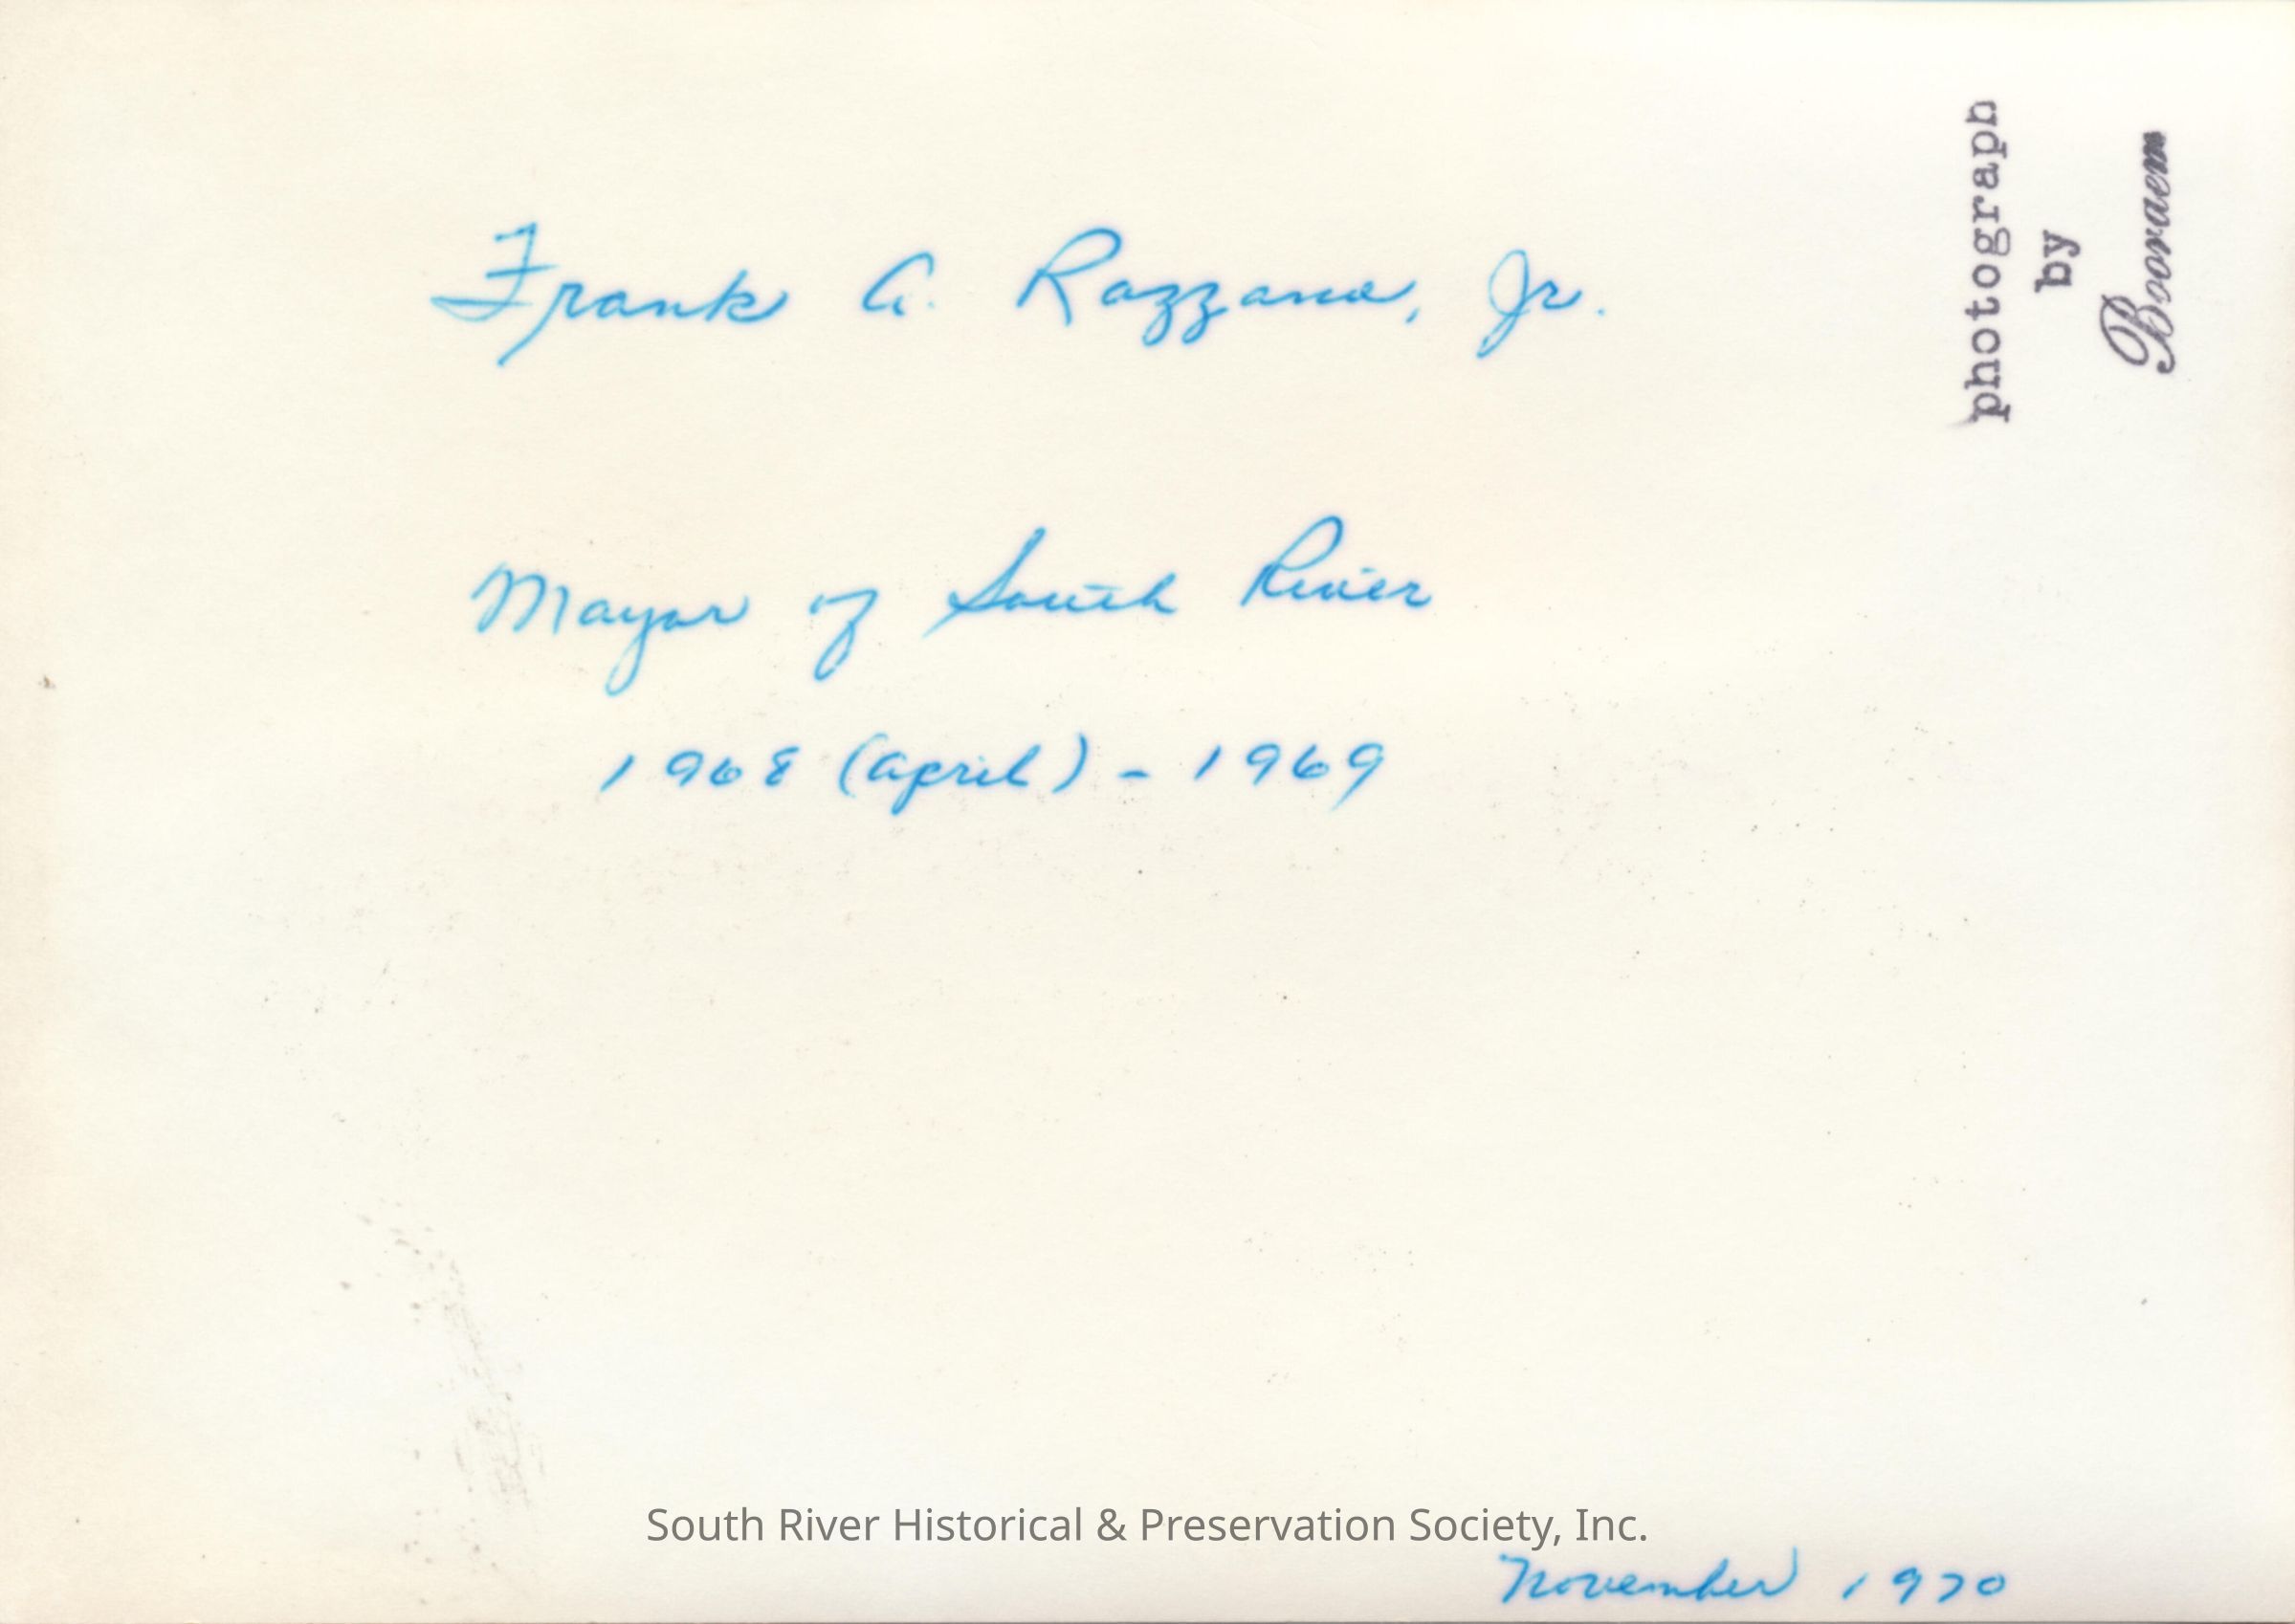 Frank A. Razzano, Jr.
Mayor of South River
1968 (April) - 1969
photograph
by
Booraem
South River Historical & Preservation Society, Inc.
November 1970